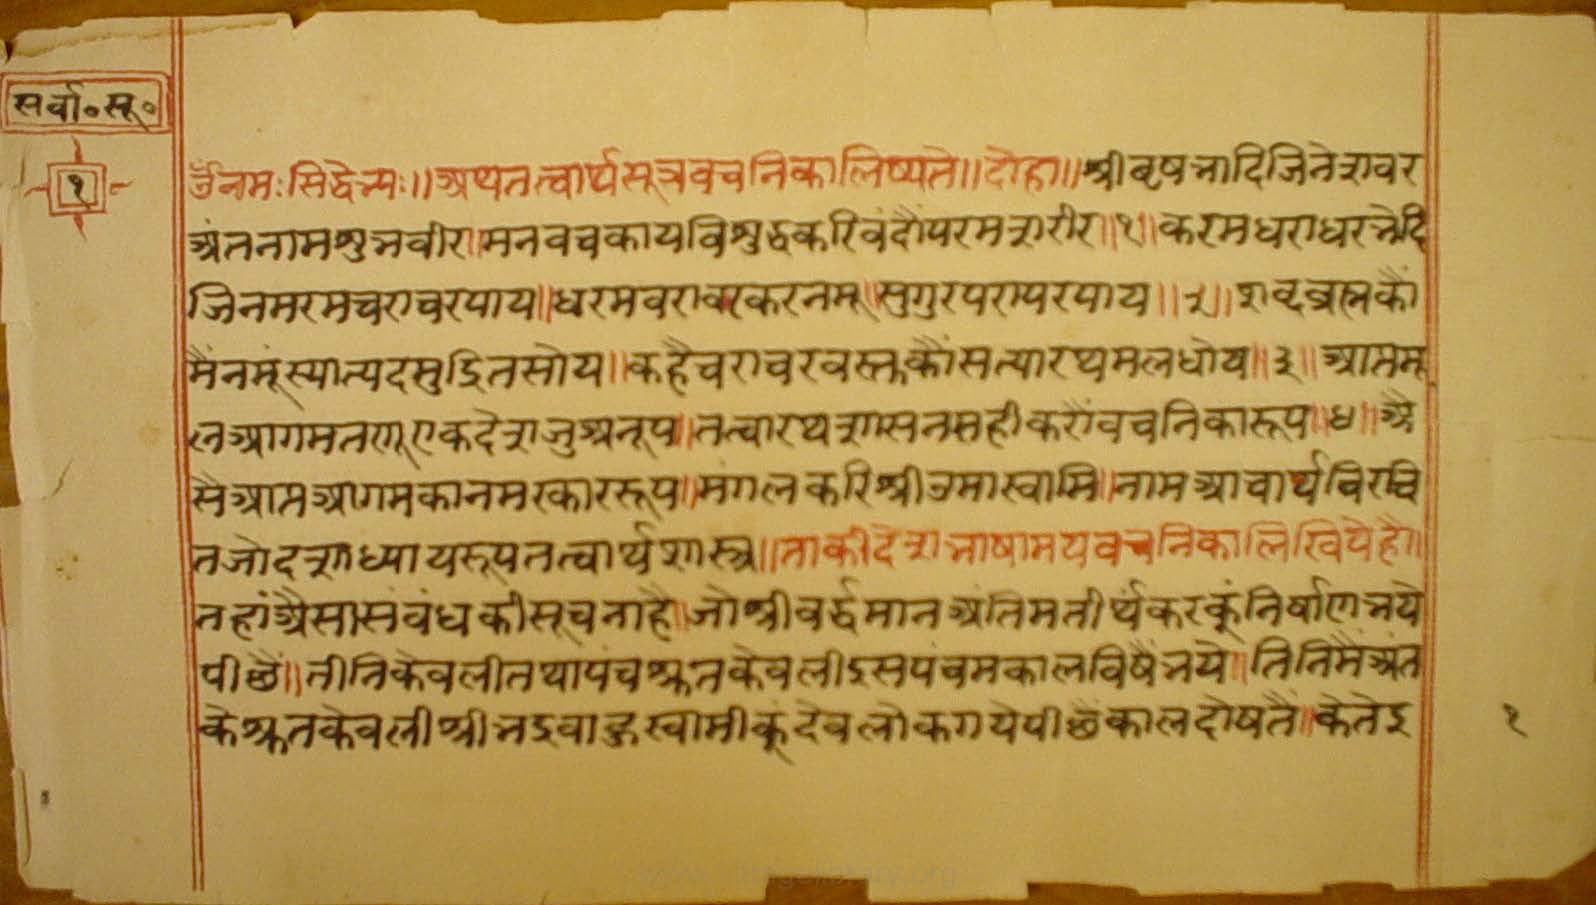 सर्वा॰सू॰
१
ॐनमःसिद्धेभ्यः॥अथतत्वार्थसूत्रवचनिकालिष्यते॥दोहा॥श्रीवृषभादिजिनेशवर
अंतनामशुभवीर॥मनवचकायविशुद्धकरिवंदौंपरमशरीर॥१॥करमधराधरभेदि
जिनमरमचराचरपाय॥धरमवरावरकरनमूं॥सुगुरपरापरपाय॥२॥शब्दब्रह्मकौं
मैंनमूंस्यात्पदमुद्रितसोय॥कहैचराचरवस्तुकौंसत्यारथमलधोय॥३॥आप्तमू
लआगमतणूएकदेशजुअनूप॥तत्वारथशासनसहीकरौंवचनिकारूप॥४॥अै
सैआप्तआगमकानमस्काररूप॥मंगलकरिश्रीउमास्वामि॥नामआचार्यविरचि
तजोदशाध्यायरूपतत्वार्थशास्त्र॥ताकीदेशभाषामयवचनिकालिखियेहै॥
तहांअैसासंबंधकीसूचनाहै॥जोश्रीवर्द्धमानअंतिमतीर्थंकरकूंनिर्वाणभये
पीछैं॥तीनिकेवलीतथापंचश्रुतकेवलीइसपंचमकालविषैंभये॥तिनिमैंअंत
केश्रुतकेवलीश्रीभद्रबाहुस्वामीकूंदेवलोकगयेपीछैंकालदोषतैं॥केतेइ
१